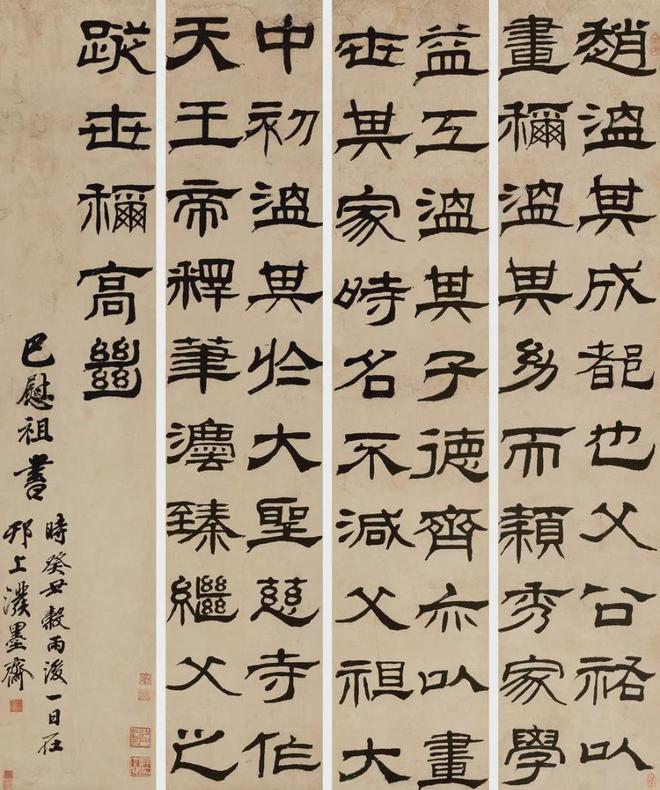 趙溫其成都也父公祐以
畫稱溫其幼而穎秀家學
益工溫其子德齊亦以畫
世其家時名不減父祖大
中初溫其於大聖慈寺作
天王帝釋筆灋臻繼父之
蹤世稱高𢇍
巴慰祖書
時癸丑穀雨後一日在
邗上潑墨齋